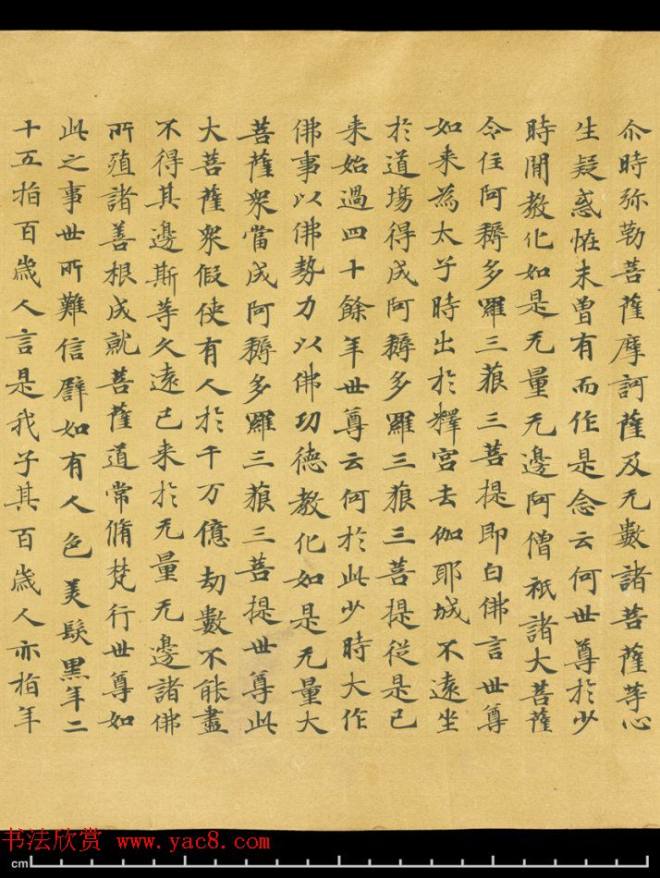 尒時弥勒菩薩摩訶薩及无數諸菩薩等心
生疑惑恠未曾有而作是念云何世尊於少
時閒教化如是无量无邊阿僧祇諸大菩薩
令住阿耨多羅三藐三菩提即白佛言世尊
如来為太子時出於釋宮去伽耶城不遠坐
於道場得成阿耨多羅三藐三菩提從是已
来始過四十餘年世尊云何於此少時大作
佛事以佛勢力以佛功德教化如是无量大
菩薩衆當成阿耨多羅三藐三菩提世尊此
大菩薩衆假使有人於千万億劫數不能盡
不得其邊斯等久遠已来於无量无邊諸佛
所殖諸善根成就菩薩道常脩梵行世尊如
此之事世所難信譬如有人色美髮黑年二
十五指百歲人言是我子其百歲人亦指年
书法欣赏 www.yac8.com
cm